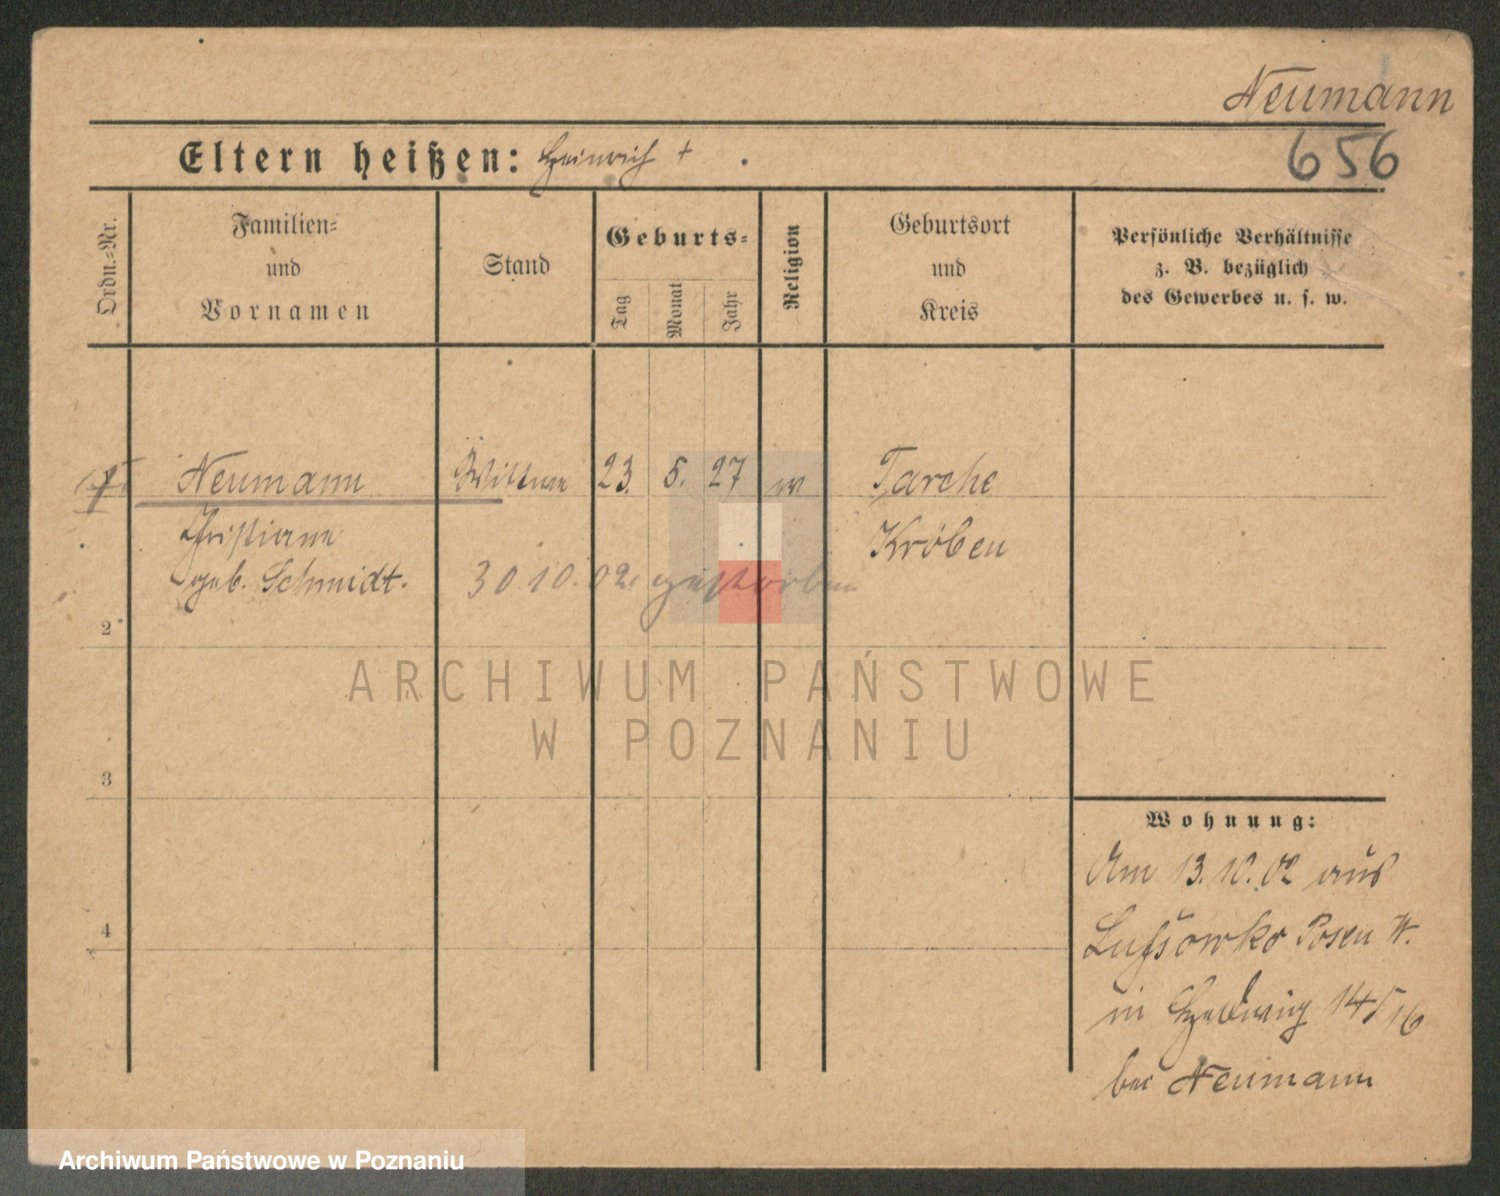 Neumann
656
Eltern heißen: Heinrich +
Ordn.-Nr.
Familien-
und
Vornamen
Stand
Geburts-
Tag
Monat
Jahr
Religion
Geburtsort
und
Kreis
Persönliche Verhältnisse
z. B. bezüglich
des Gewerbes u. s. w.
Neumann Wittwe 23. 5. 27 Tarche
Christiane Kröben
geb. Schmidt. 30.10.02. gestorben
2
3
4
ARCHIWUM PAŃSTWOWE
W POZNANIU
Wohnung:
Am 13.10.02 aus
Lussowko Posen W.
in Hedwig 14/16
bei Neumann
Archiwum Państwowe w Poznaniu